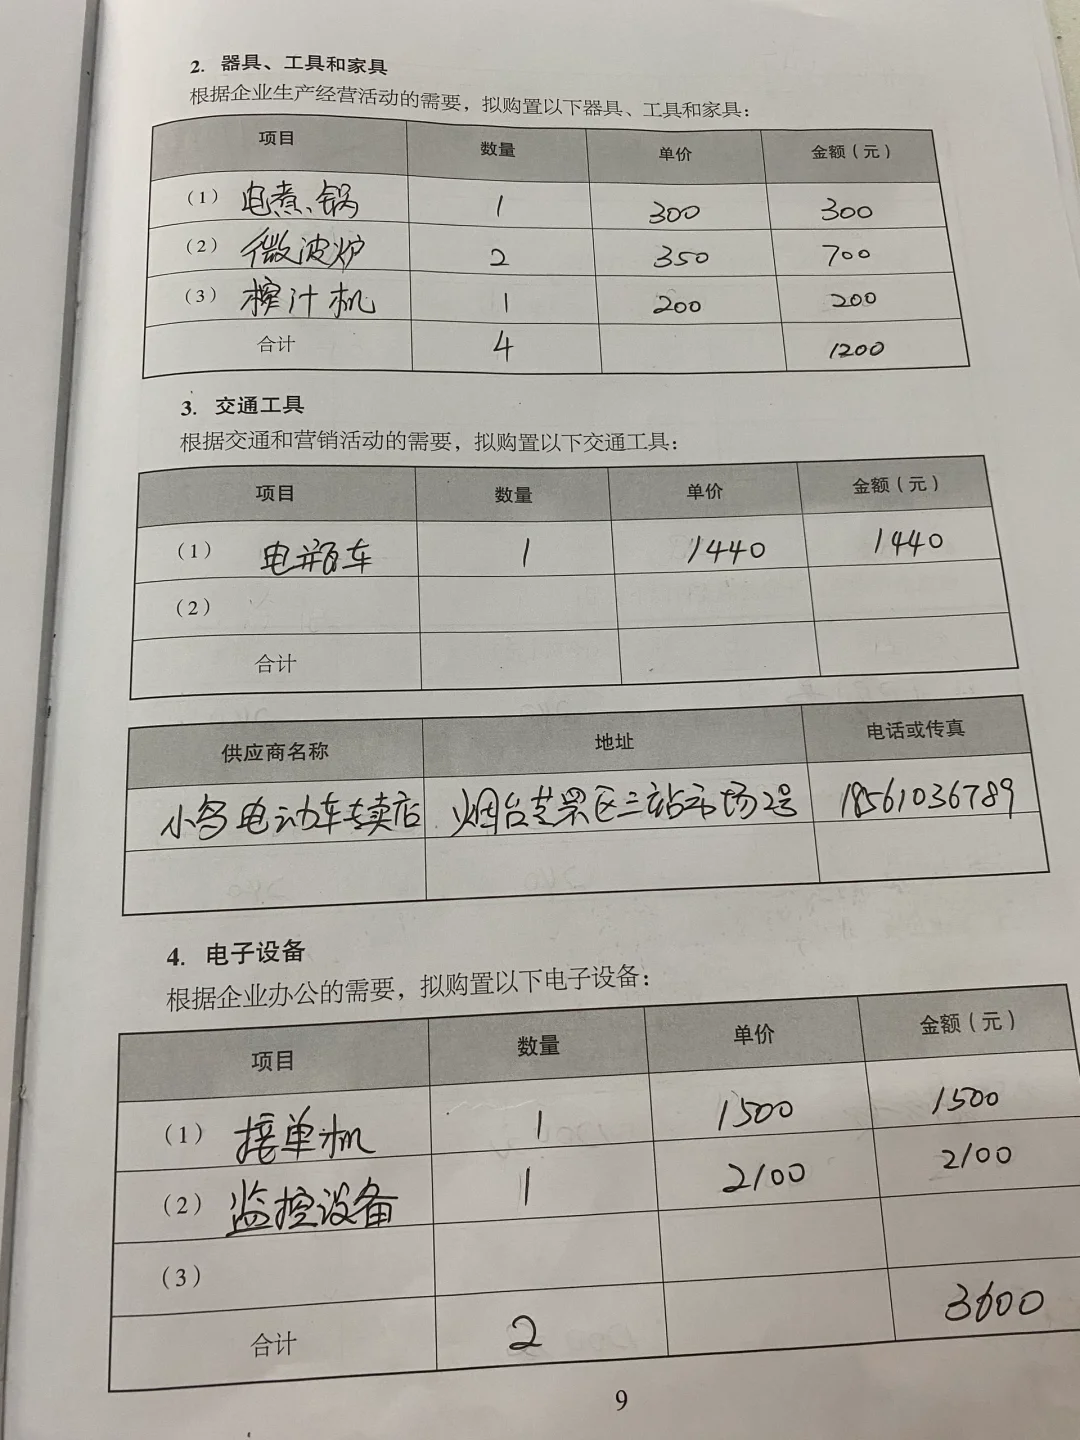 2. 器具、工具和家具
根据企业生产经营活动的需要，拟购置以下器具、工具和家具：
项目 数量 单价 金额（元）
（1） 电煮锅 1 300 300
（2） 微波炉 2 350 700
（3） 榨汁机 1 200 200
合计 4 1200
3. 交通工具
根据交通和营销活动的需要，拟购置以下交通工具：
项目 数量 单价 金额（元）
（1） 电瓶车 1 1440 1440
（2）
合计
供应商名称 地址 电话或传真
小鸟电动车专卖店 烟台芝罘区三站市场2号 18561036789
4. 电子设备
根据企业办公的需要，拟购置以下电子设备：
项目 数量 单价 金额（元）
（1） 接单机 1 1500 1500
（2） 监控设备 1 2100 2100
（3）
合计 2 3600
9